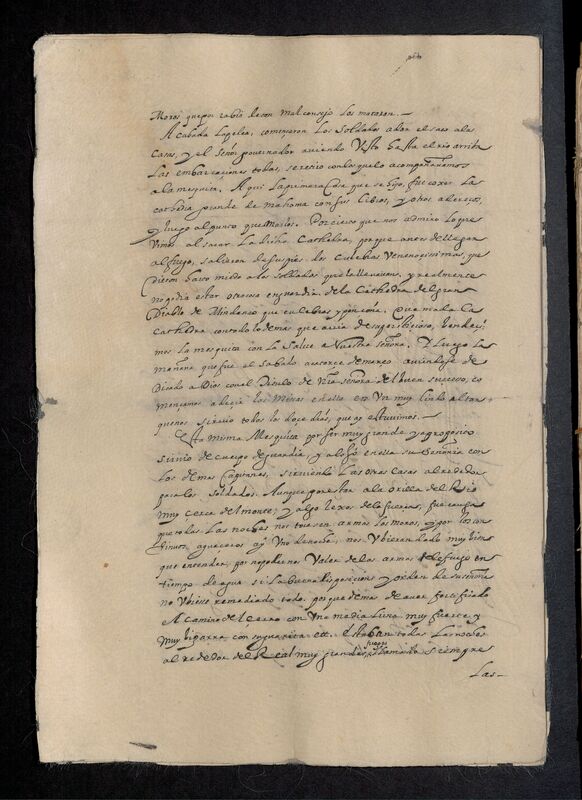 Moros, que por rabia de son mal consejo Los mataron.—
Acabada La pelea, començaron Los Soldados a dar el saco a las
Casas, y el Señor governador aviendo Visto hasta el rio arriba
Las embarcaciones todas, se vino con los que lo acompañavamos
a la mesquita. Aqui La primera Cosa que se hizo, fue coxer La
cathedra grande de mahoma con sus Libros, y otros adereços,
y luego al punto quemarlos. Por cierto que nos admiro Lo que
Vimos al sacar La dicha Cathedra, porque antes de llegar
al fuego, salieron de sus pies dos Culebras Venenosissimas, que
dieron harto miedo a los Soldados que la llevavan, y realmente
no podia estar otra cosa en guardia de la Cathedra del gran
Diablo de Mindanao que culebras y ponçoña. Quemada La
Cathedra con todo lo demas que avia de supersticioso, bendeci-
mos La mesquita con La Salve a Nuestra Señora. Y Luego La
mañana que fue el sabado a catorce de março, aviendose de-
dicado a Dios con el titulo de Nra señora del buen successo, co
mençamos a decir Las Missas en ella en Un muy lindo altar
que nos sirvio todos los doce dias, que ay estuvimos.—
Esta misma Mesquita por ser muy grande y a proposito
sirvio de cuerpo de guardia, y alojó en ella su Señoria con
Los demas Capitanes, sirviendo Las otras Casas al rededor
para los Soldados. Aunque por estar a la orilla del Rio
muy cerca del monte, y algo Lexos de la fuerça, fue causa
que todas Las noches nos tocasen arma los moros, y por los con
tinuos aguaceros ay Una de noche, nos Vbieran dado muy bien
que entender, por no poderse Valer de las armas de fuego en
tiempo de agua, si La Buena disposicion y orden de su señoria
no Vbiese remediado todo. porque demas de aver fortificado
el camino del cerro con Una media Luna muy fuerte y
muy bizarra con su guarita ett. Estaban todas Las noches
al rededor del Real muy grandes fuegos llamando siempre
Las—